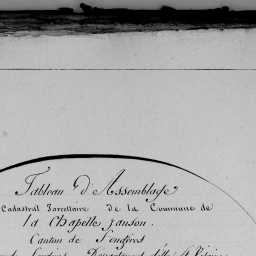 Tableau d'Assemblage
Cadastral Parcellaire de la Commune de
la Chapelle Janson.
Canton de Fougères
Département d'Ille &